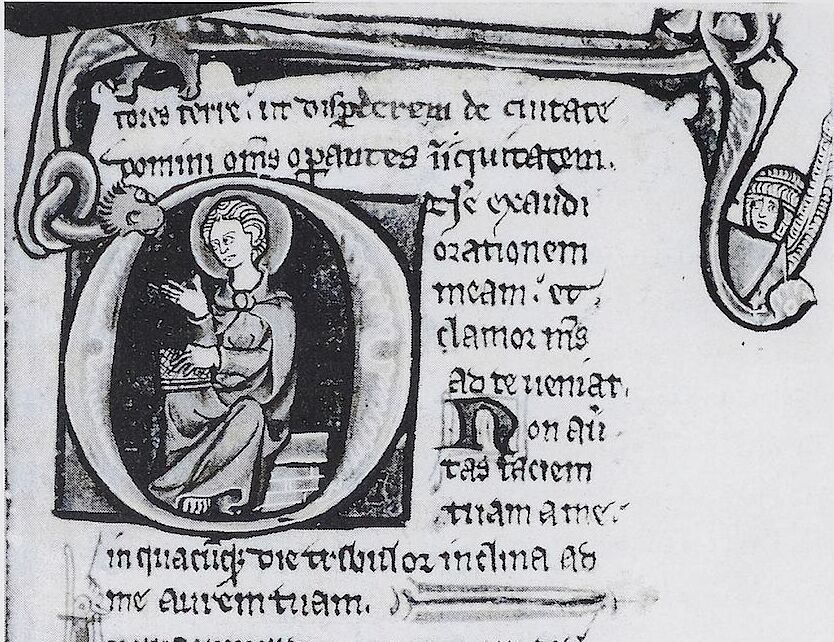 tores terre: ut disp̱derem de ciuitate
domini om̄s op̱antes īiquitatem.
D n̄e exaudi
orationem
meam: et
clamor m̄s
ad te ueniat.
Non aū
tas faciem
tuam a me:
in quacūqʒ die tribulor inclina ad
me aurem tuam.